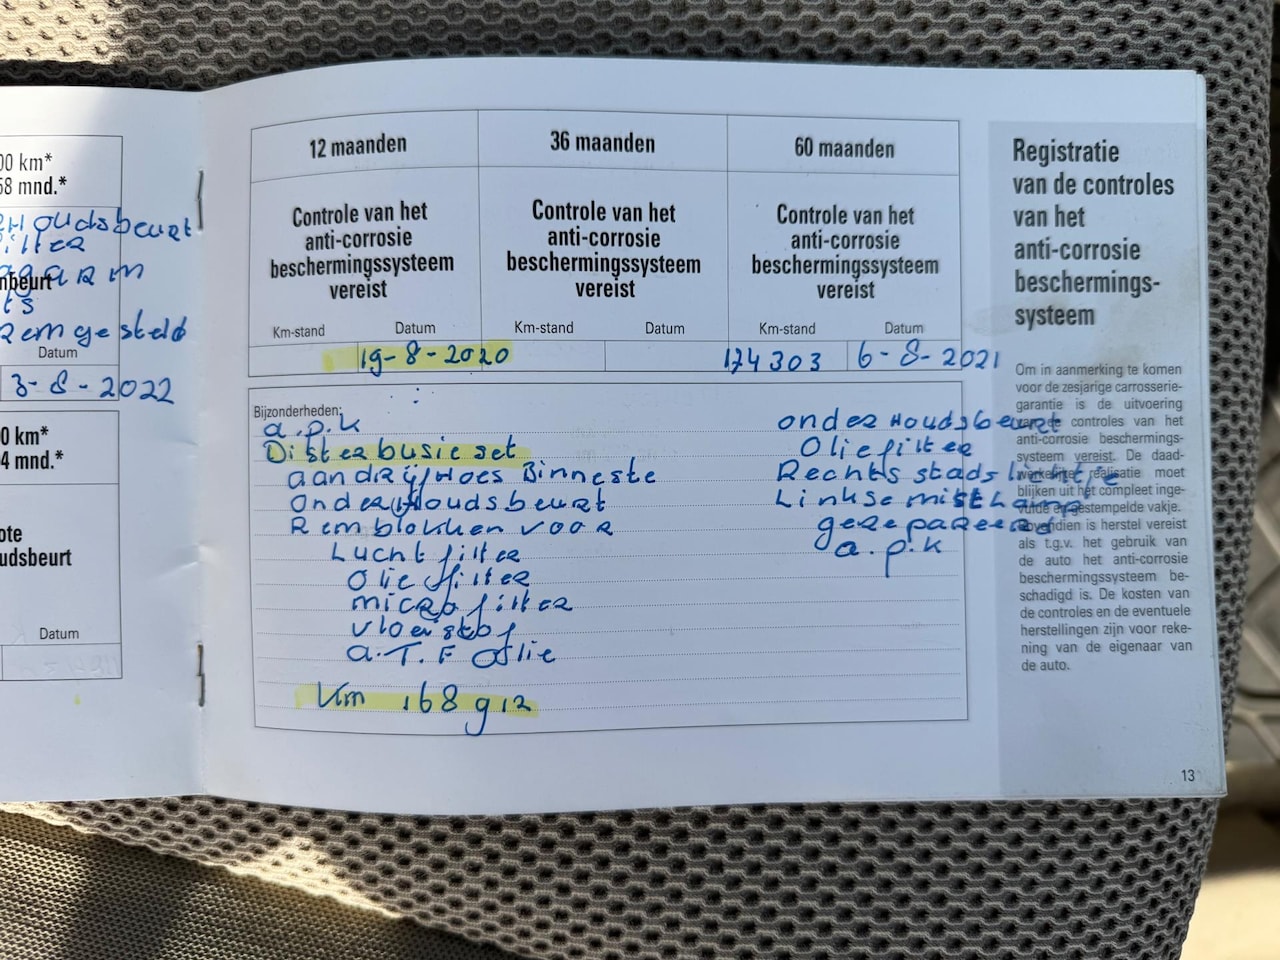 00 km*
58 mnd.*
Houdsbeurt
nbeurt
Remgesteld
Datum
3-8-2022
0 km*
4 mnd.*
ote
udsbeurt
Datum
12 maanden
Controle van het
anti-corrosie
beschermingssysteem
vereist
Km-stand Datum
19-8-2020
36 maanden
Controle van het
anti-corrosie
beschermingssysteem
vereist
Km-stand Datum
60 maanden
Controle van het
anti-corrosie
beschermingssysteem
vereist
Km-stand Datum
174303 6-8-2021
Bijzonderheden:
a.p.k
Disterbusie set
aandrijfhoes Binneste
onderHoudsbeurt
Remblokken voor
Lucht filter
Olie filter
microfilter
vloeistof
a.T.F Olie
Km 168912
onderHoudsbeurt
Oliefilter
Rechts stadslichtje
Linkse mistLamp
gerepareerd
a.p.k
Registratie
van de controles
van het
anti-corrosie
beschermings-
systeem
Om in aanmerking te komen
voor de zesjarige carrosserie-
garantie is de uitvoering
van de controles van het
anti-corrosie beschermings-
systeem vereist. De daad-
werkelijke realisatie moet
blijken uit het compleet inge-
vulde en gestempelde vakje.
Bovendien is herstel vereist
als t.g.v. het gebruik van
de auto het anti-corrosie
beschermingssysteem be-
schadigd is. De kosten van
de controles en de eventuele
herstellingen zijn voor reke-
ning van de eigenaar van
de auto.
13